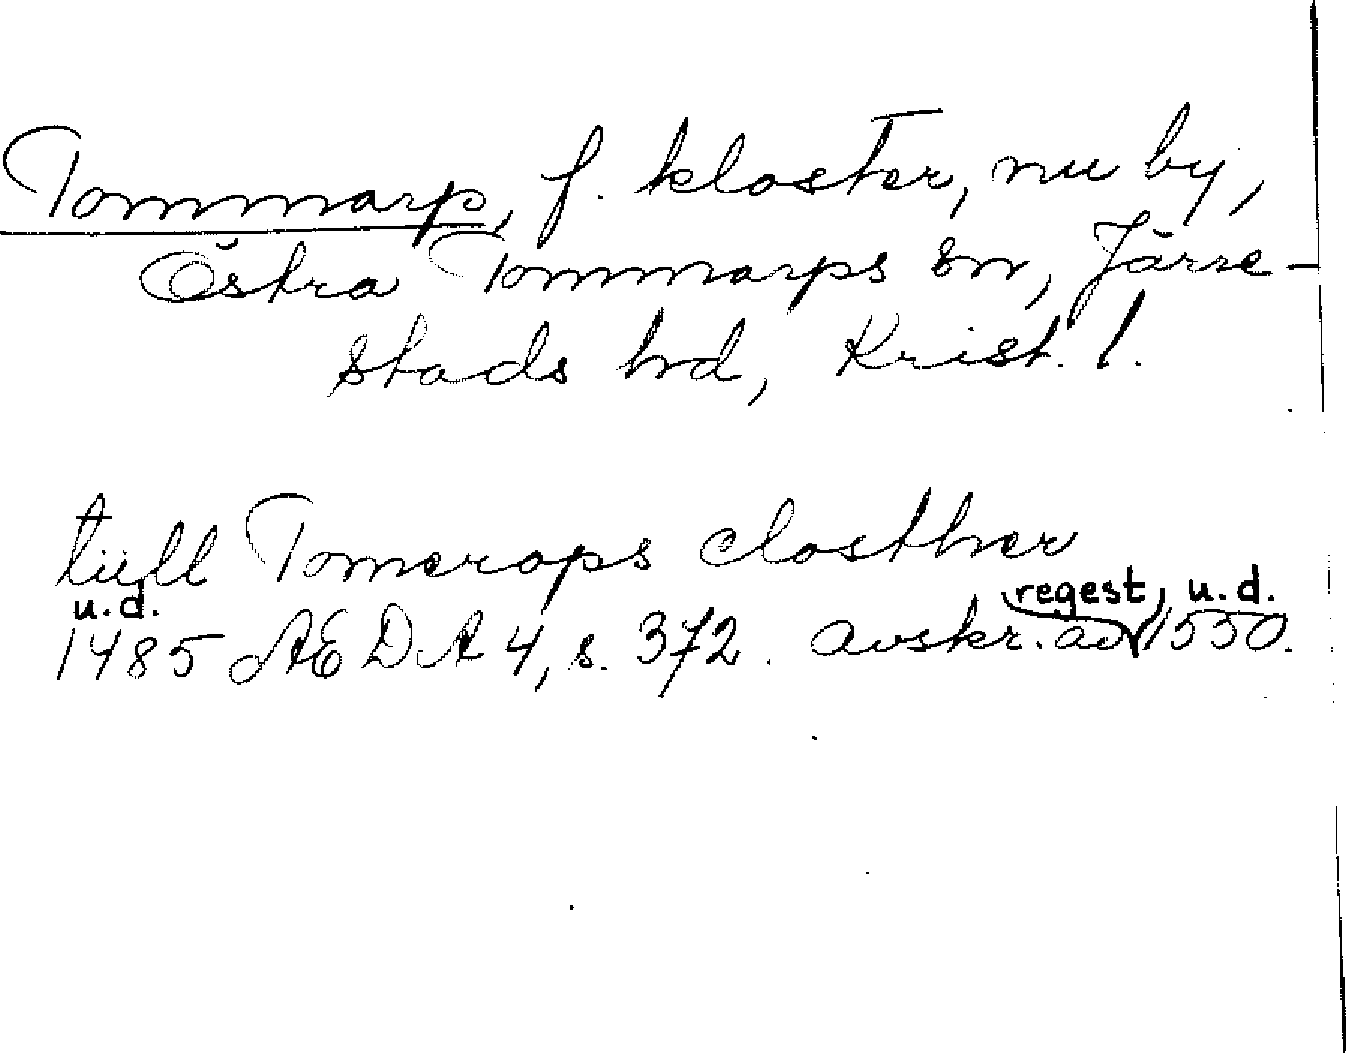 Tommarp, f. kloster, nu by,
Östra Tommarps sn, Järre-
stads hd, Krist. l.
tiill Tomerops closther
u.d. regest, u.d.
1485 ÆDA 4, s. 372. avskr. av 1550.